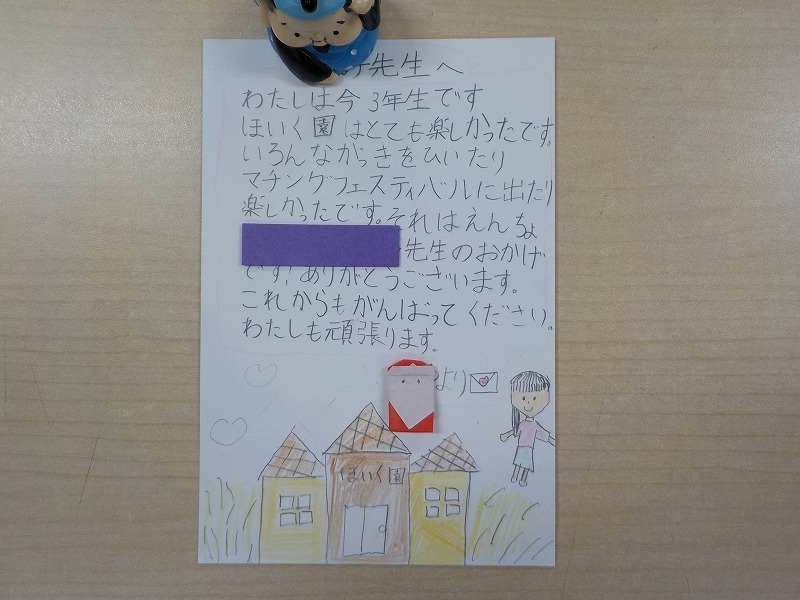 先生へ
わたしは今3年生です
ほいく園はとても楽しかったです。
いろんながっきをひいたり
マチングフェスティバルに出たり
楽しかったです。それはえんちょ
先生のおかげ
です!ありがとうございます。
これからもがんばってください。
わたしも頑張ります。
より
ほいく園